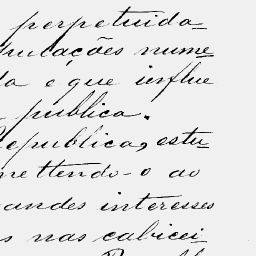 perpetuida-
rulações nume-
da e que influe
publica.
Republica, estu-
mettendo-o ao
andes interesses
s nas cabicei-